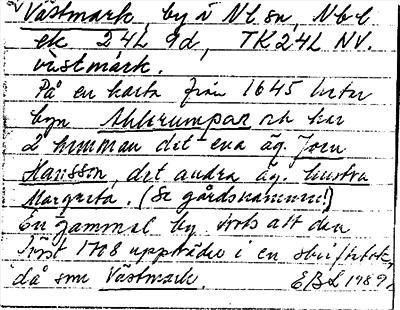 Västmark, by i Nl sn, Nbl
ek 24L 9d, TK 24L NV.
västmark.
På en karta från 1645 heter
byn Ahlerumpan och har
2 hemman det ena äg. Jon
Hansson, det andra äg. hustru
Margreta. (Se gårdsnamnen!)
En gammal by trots att den
först 1708 uppträder i en skriftebok,
då som Västmark. EBL 1989.